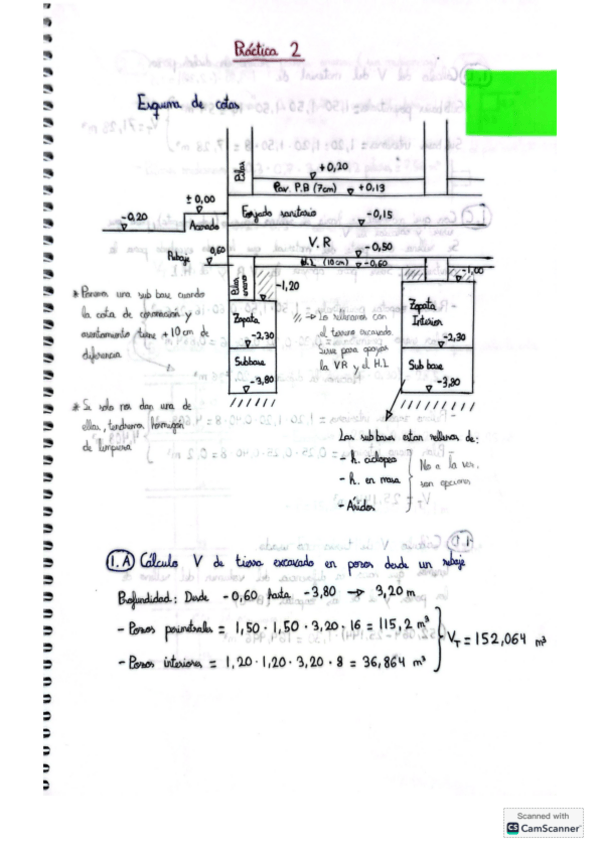 Práctica 2
Esquema de cotas
+0,20
Pilar
Pav. P.B (7cm) +0,13
± 0,00
-0,20
Acerado
Forjado sanitario
-0,15
V.R
-0,50
Rebaje
0,60
H.L (10cm) -0,60
-1,00
Pilar enano
-1,20
* Ponemos una sub base cuando
la cota de coronación y
asentamiento tiene + 10 cm de
diferencia
Zapata
-2,30
Subbase
-3,80
/// → Lo rellenamos con
el terreno excavado.
Sirve para apoyar
la VR y el H.L
Zapata
Interior
-2,30
Sub base
-3,80
* Si solo nos dan una de
ellas, tendremos hormigón
de limpieza
Las sub bases estan rellenas de:
- h. ciclopeo
- h. en masa
- Áridos
No a la vez,
son opciones
1.A Cálculo V de tierra excavado en pozos desde un rebaje
Profundidad: Desde -0,60 hasta -3,80 → 3,20 m
- Pozos perimetrales = 1,50 · 1,50 · 3,20 · 16 = 115,2 m³
- Pozos interiores = 1,20 · 1,20 · 3,20 · 8 = 36,864 m³
V_T = 152,064 m³
Scanned with
CS CamScanner